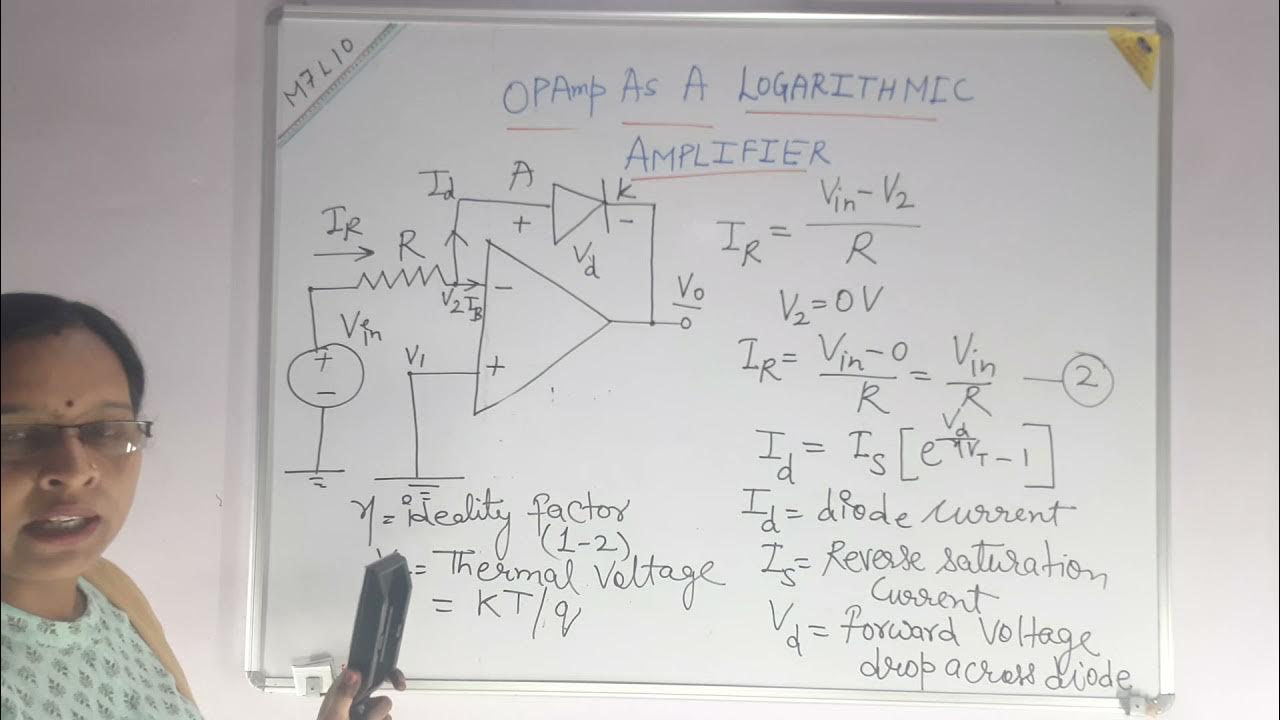 M7L10
OPAmp As A LOGARITHMIC
AMPLIFIER
Id
A
K
+
-
Vd
IR
R
V2 IB
-
Vin
+
-
V1
+
Vo
IR = Vin - V2 / R
V2 = 0V
IR = Vin - 0 / R = Vin / R — 2
Id = Is [e^Vd/ηVT - 1]
Id = diode current
Is = Reverse saturation
current
Vd = forward voltage
drop across diode
η = ideality factor
(1-2)
= Thermal Voltage
= KT/q